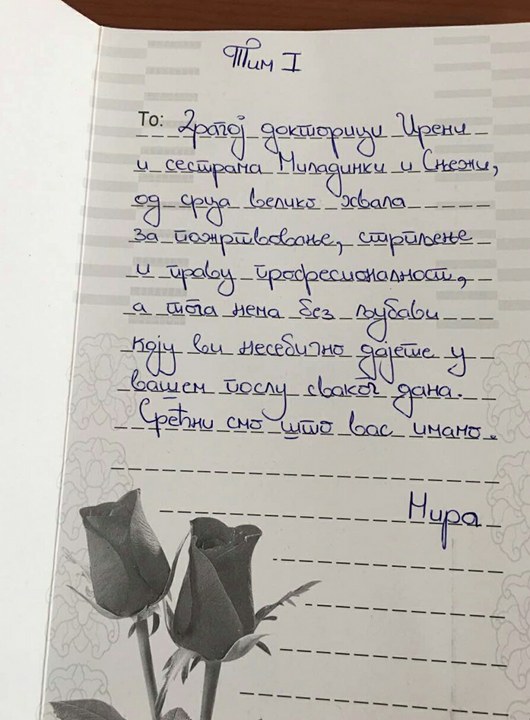 Тим I
To: Драгој докторици Ирени
и сестрама Миладинки и Сњежи,
од срца велико хвала
за пожртвовање, стрпљење
и праву професионалност,
а тога нема без љубави
коју ви несебично дајете у
вашем послу сваког дана.
Срећни смо што вас имамо.
Мира